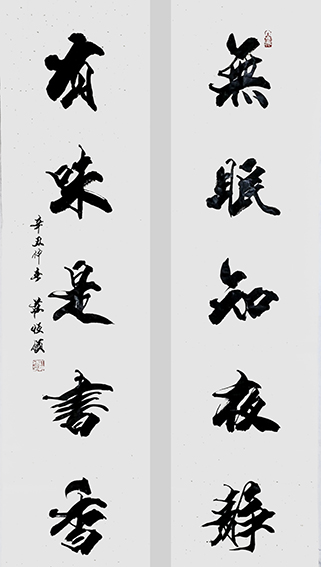 無眠知夜静
有味是書香
辛丑仲春